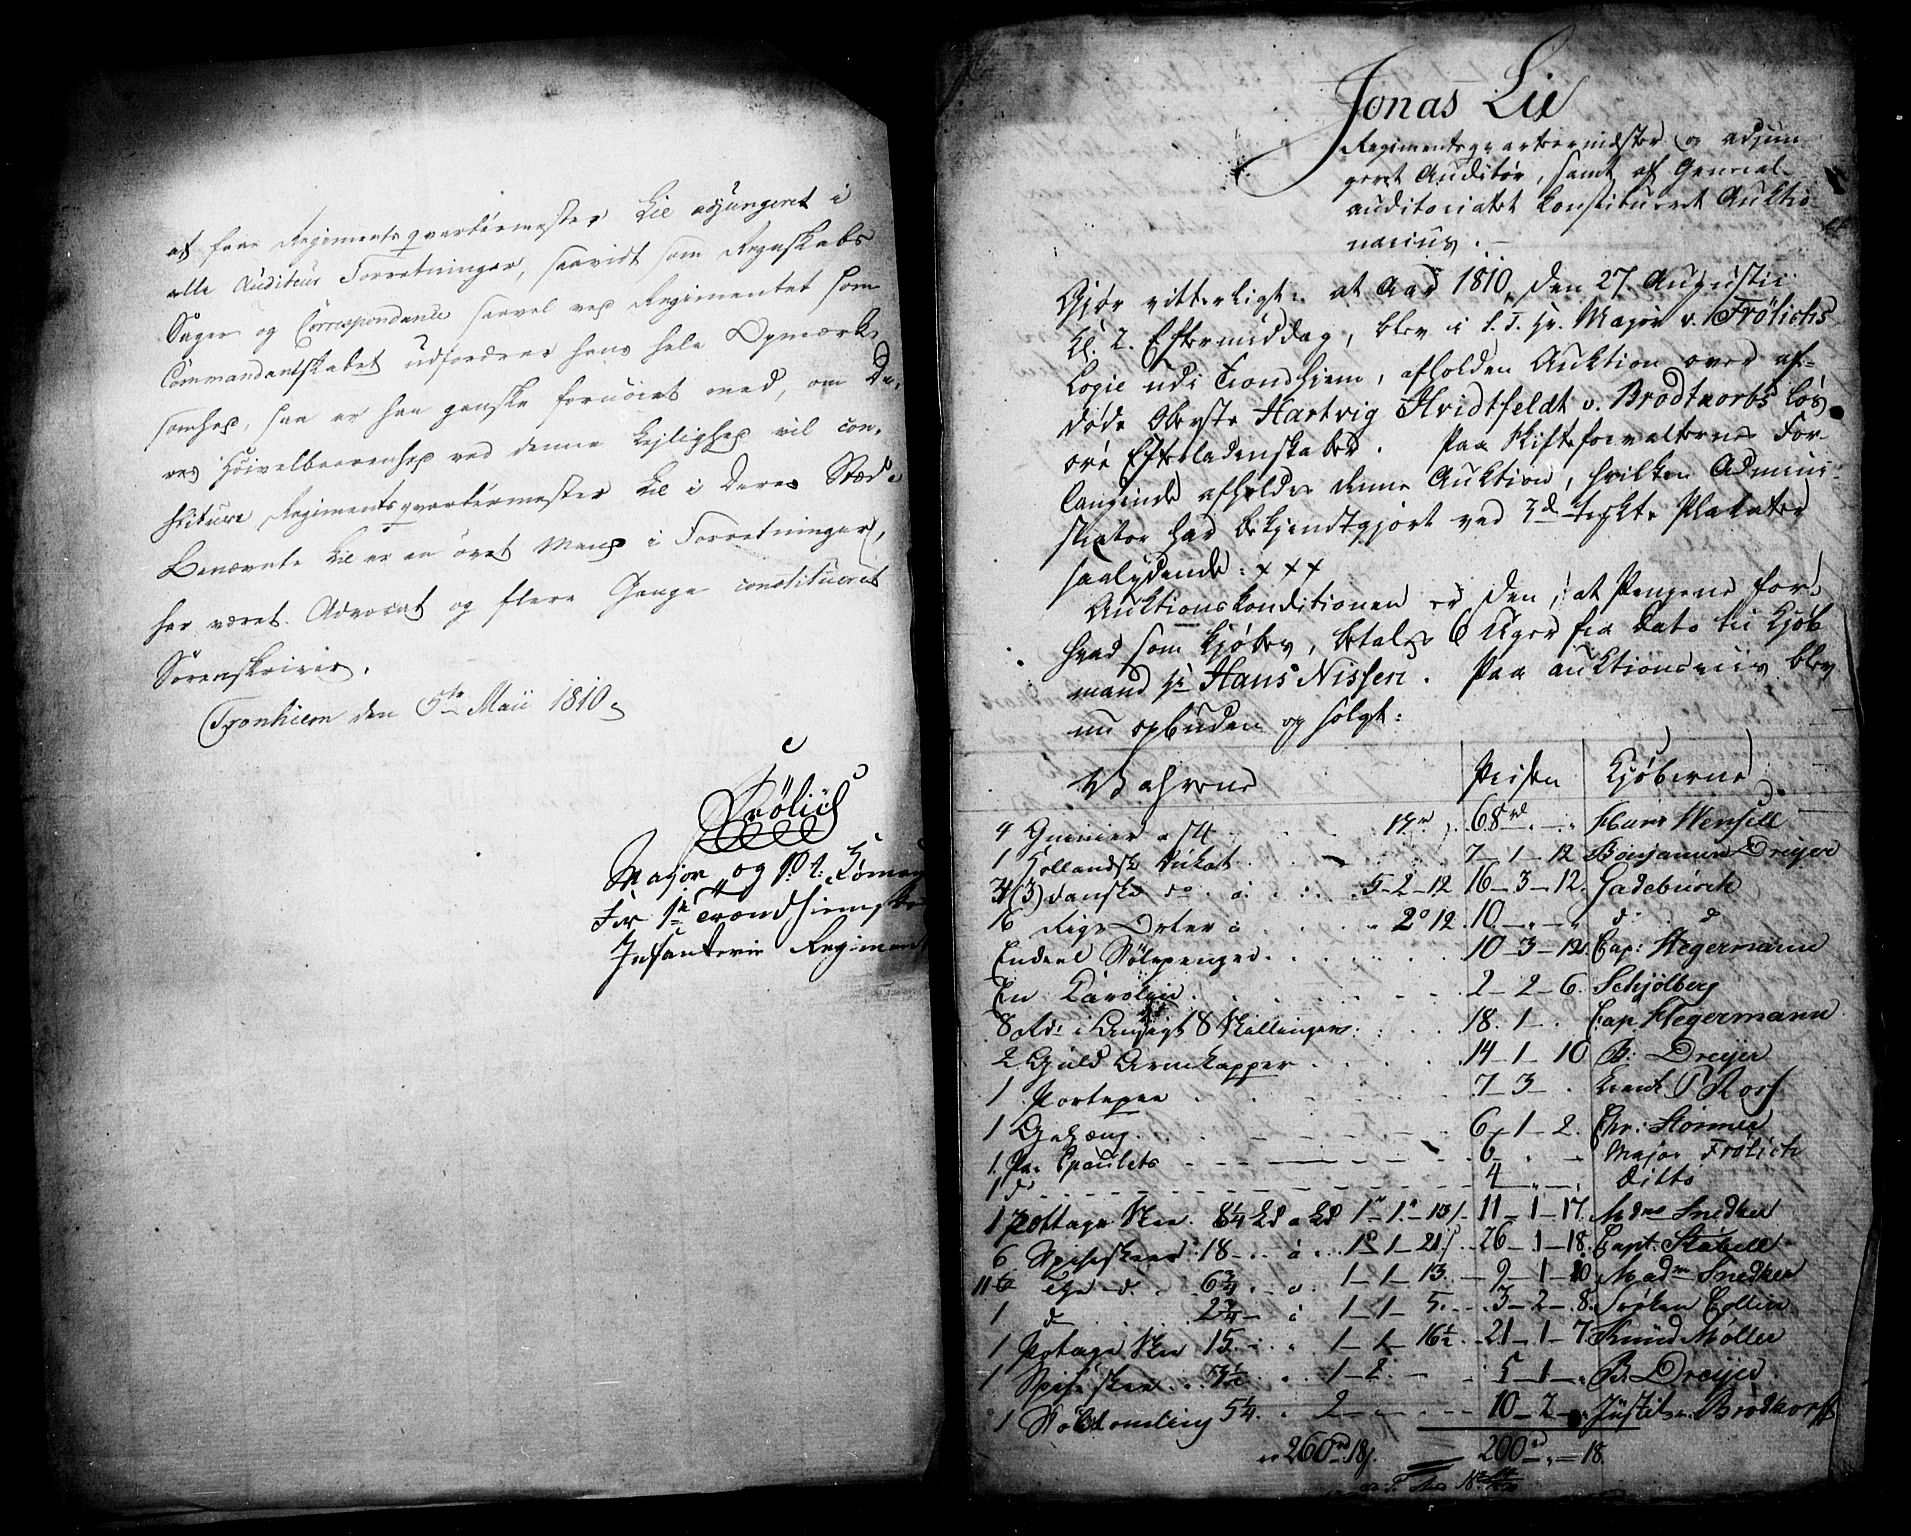 at faae Regimentsqvartermester Lie adjungeret i
alle Auditeur Forretninger, saavidt som Regnskabs
Sager og Correspondance saavel ved Regimentet som
Commandantskabet udfordrer hans hele Opmærk-
somhed, saa er han ganske fornøiet med, om De-
res Høivelbaarenhed ved denne Lejlighed vil con-
stituere Regimentsqvartermester Lie i Deres Sted
Benævnte Lie er en øvet Mand i Forretninger,
har været Advocat og flere Gange constitueret
Sorenskriver.
Tronhiem den 5te Maii 1810.
Frölich
Major og p.t. Comman
for 1te Trondhiemske
Infanterie Regiment
Jonas Lie
Regimentsqvarteermester og adjun
geret Auditør, samt af General-
auditoriatet konstitueret Auktio
narius.
Gjør vitterligt: at Aar 1810, den 27. Augustii
Kl. 2. Eftermiddag, blev i S. T. Hr. Major v. Frölichs
Logie udi Trondhiem, afholden Auktion over af-
døde Oberste Hartvig Hvidtfeldt v. Brodtkorbs Løs
øre Efterladenskaber. Paa Skifteforvalterens For-
langende afholdes denne Auktion, hvilken Admini-
strator har bekjendtgjort ved 3de trykte Plakater
saalydende: xxx
Auktionskonditionen er den, at Pengene for
hvad som kjøbes, betales 6 Uger fra Dato til Kjøb
mand Hr Hans Nissen. Paa auktionsviis blev
nu opbuden og solgt:
Vahrene Prisen Kjøberne
4 Guineer a 17 68 rd Wensell
1 Hollandsk Dukat 7-1-12 Benjamin Dreyer
3 (3) danske do a 5-2-12 16-3-12 Gadebusch
16 Rigs Orter a 2 o 12 10 d d
Endeel Sølvpenge 10-3-12 Cap: Hegermann
En Carolin 2-2-6 Schjølberg
8 Rd. i 8 Skillinger 18.1 Cap. Hegermann
2 Guld 14-1-10 B. Dreyer
1 Portepee 7-3 P Rosf
1 Gehæng 6-1-2 Chr: Stormer
1 Par Epaulets 6 Major Frölich
1 do 4 Ditto
1 Pottage Skee 8¼ Ld a Ld 1-1-13 11-1-17 Mdme Snedker
6 Spiseskeer 18 a 1-1-21 26-1-18 Capt. Stabell
6 The d. 6¾ a 1-1-13 9-1-10 Madm Snedker
1 d 2¾ a 1-1-5 3-2-8 Frøken Collin
1 Potage Skee 15 1-1-16½ 21-1-7 Knud Møller
1 Spise skee 3½ 1-2 5-1 B. Dreyer
1 5¼ 2 10-2 Brodkorb
260 rd 18 200 rd 18